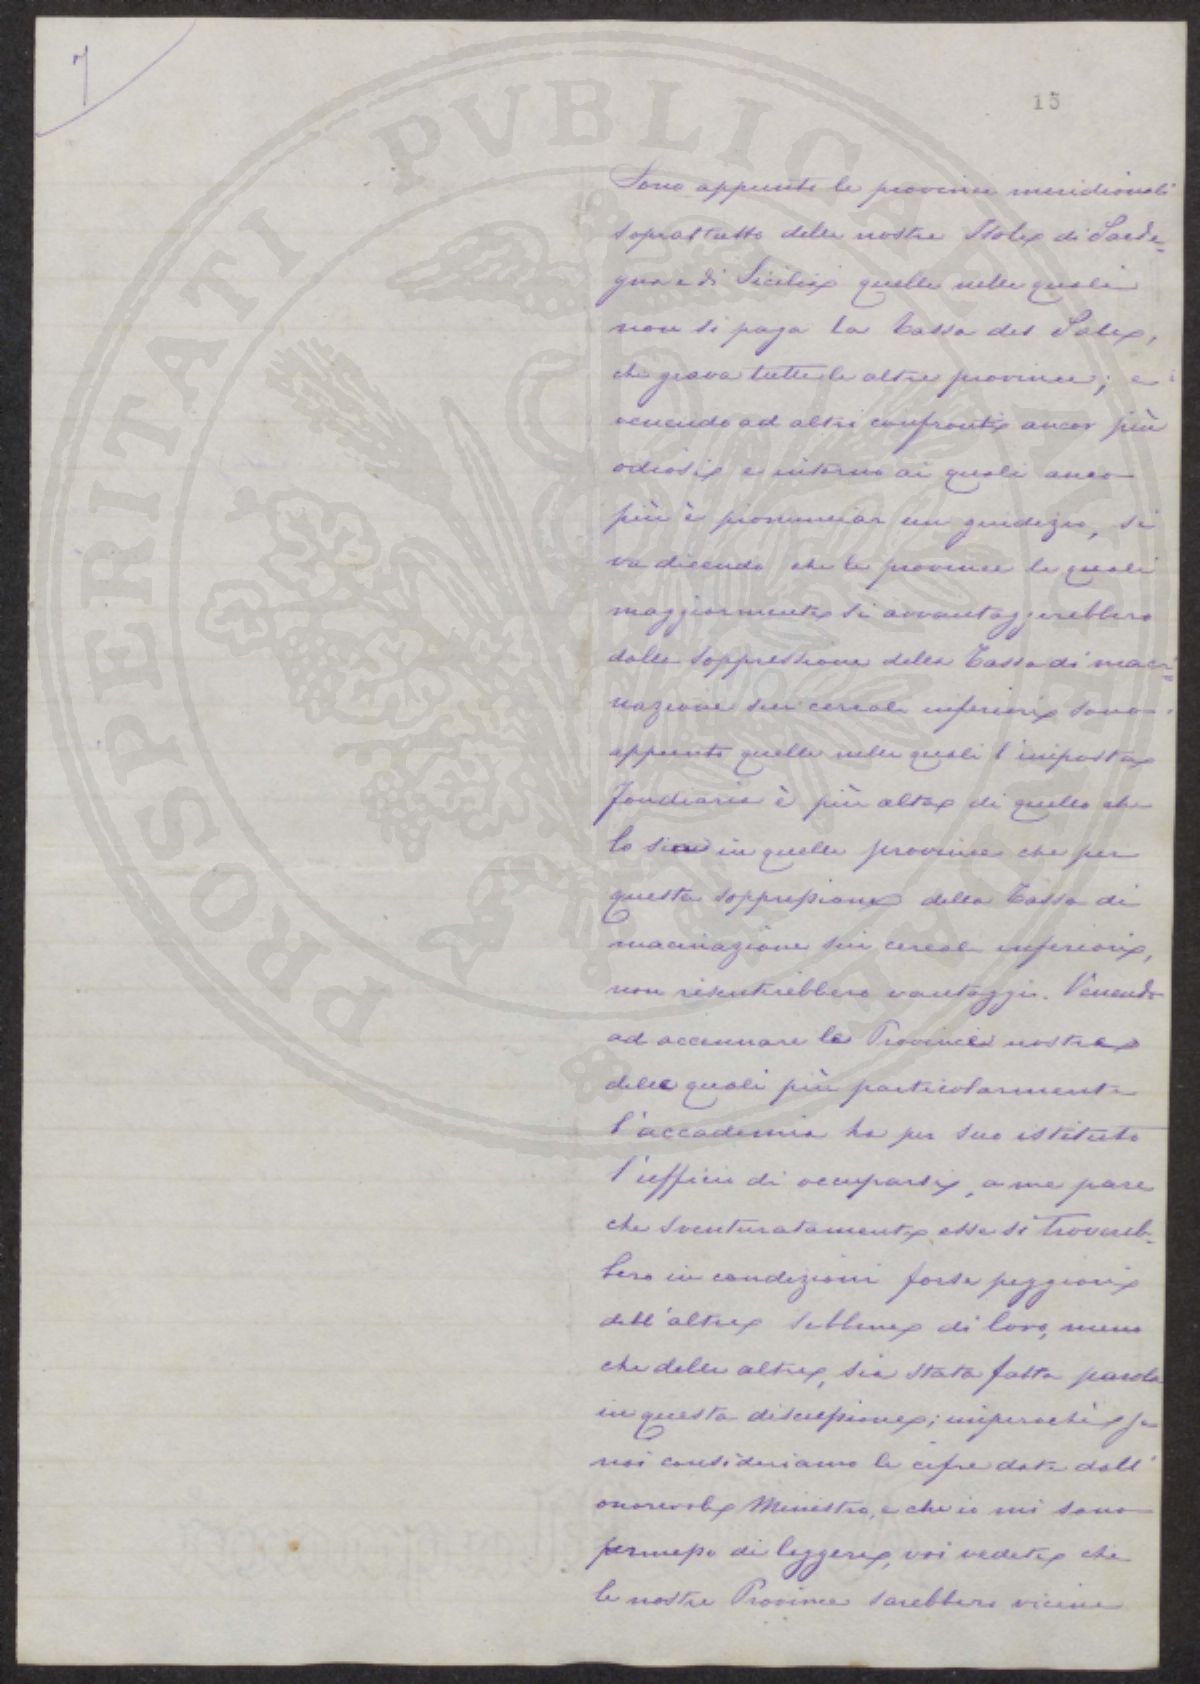 7
15
PROSPERITATI PVBLICAE
Sono appunto le provincie meridionali
soprattutto delle nostre Isole di Sarde=
gna e di Sicilia quelle nelle quali
non si paga la tassa del Sale,
che grava tutte le altre provincie; e
venendo ad altri confronti ancor più
odiosi e intorno ai quali anco
più è pronunciar un giudizio, si
va dicendo che le provincie le quali
maggiormente si avvantaggerebbero
dalla soppressione della tassa di maci=
nazione sui cereali inferiori sono
appunto quelle nelle quali l'imposta
fondiaria è più alta di quello che
lo sia in quelle provincie che per
questa soppressione della tassa di
macinazione sui cereali inferiori,
non risentirebbero vantaggi. Venendo
ad accennare le Provincie nostre
delle quali più particolarmente
l'accademia ha per suo istituto
l'ufficio di occuparsi, a me pare
che sventuratamente esse si troverеb=
bero in condizioni forse peggiori
dell'altre sebbene di loro, meno
che delle altre, sia stata fatta parola
in questa discussione; imperochè se
noi consideriamo le cifre date dall'
onorevole Ministro, e che io mi sono
permesso di leggere, voi vedete che
le nostre Provincie sarebbero vicine